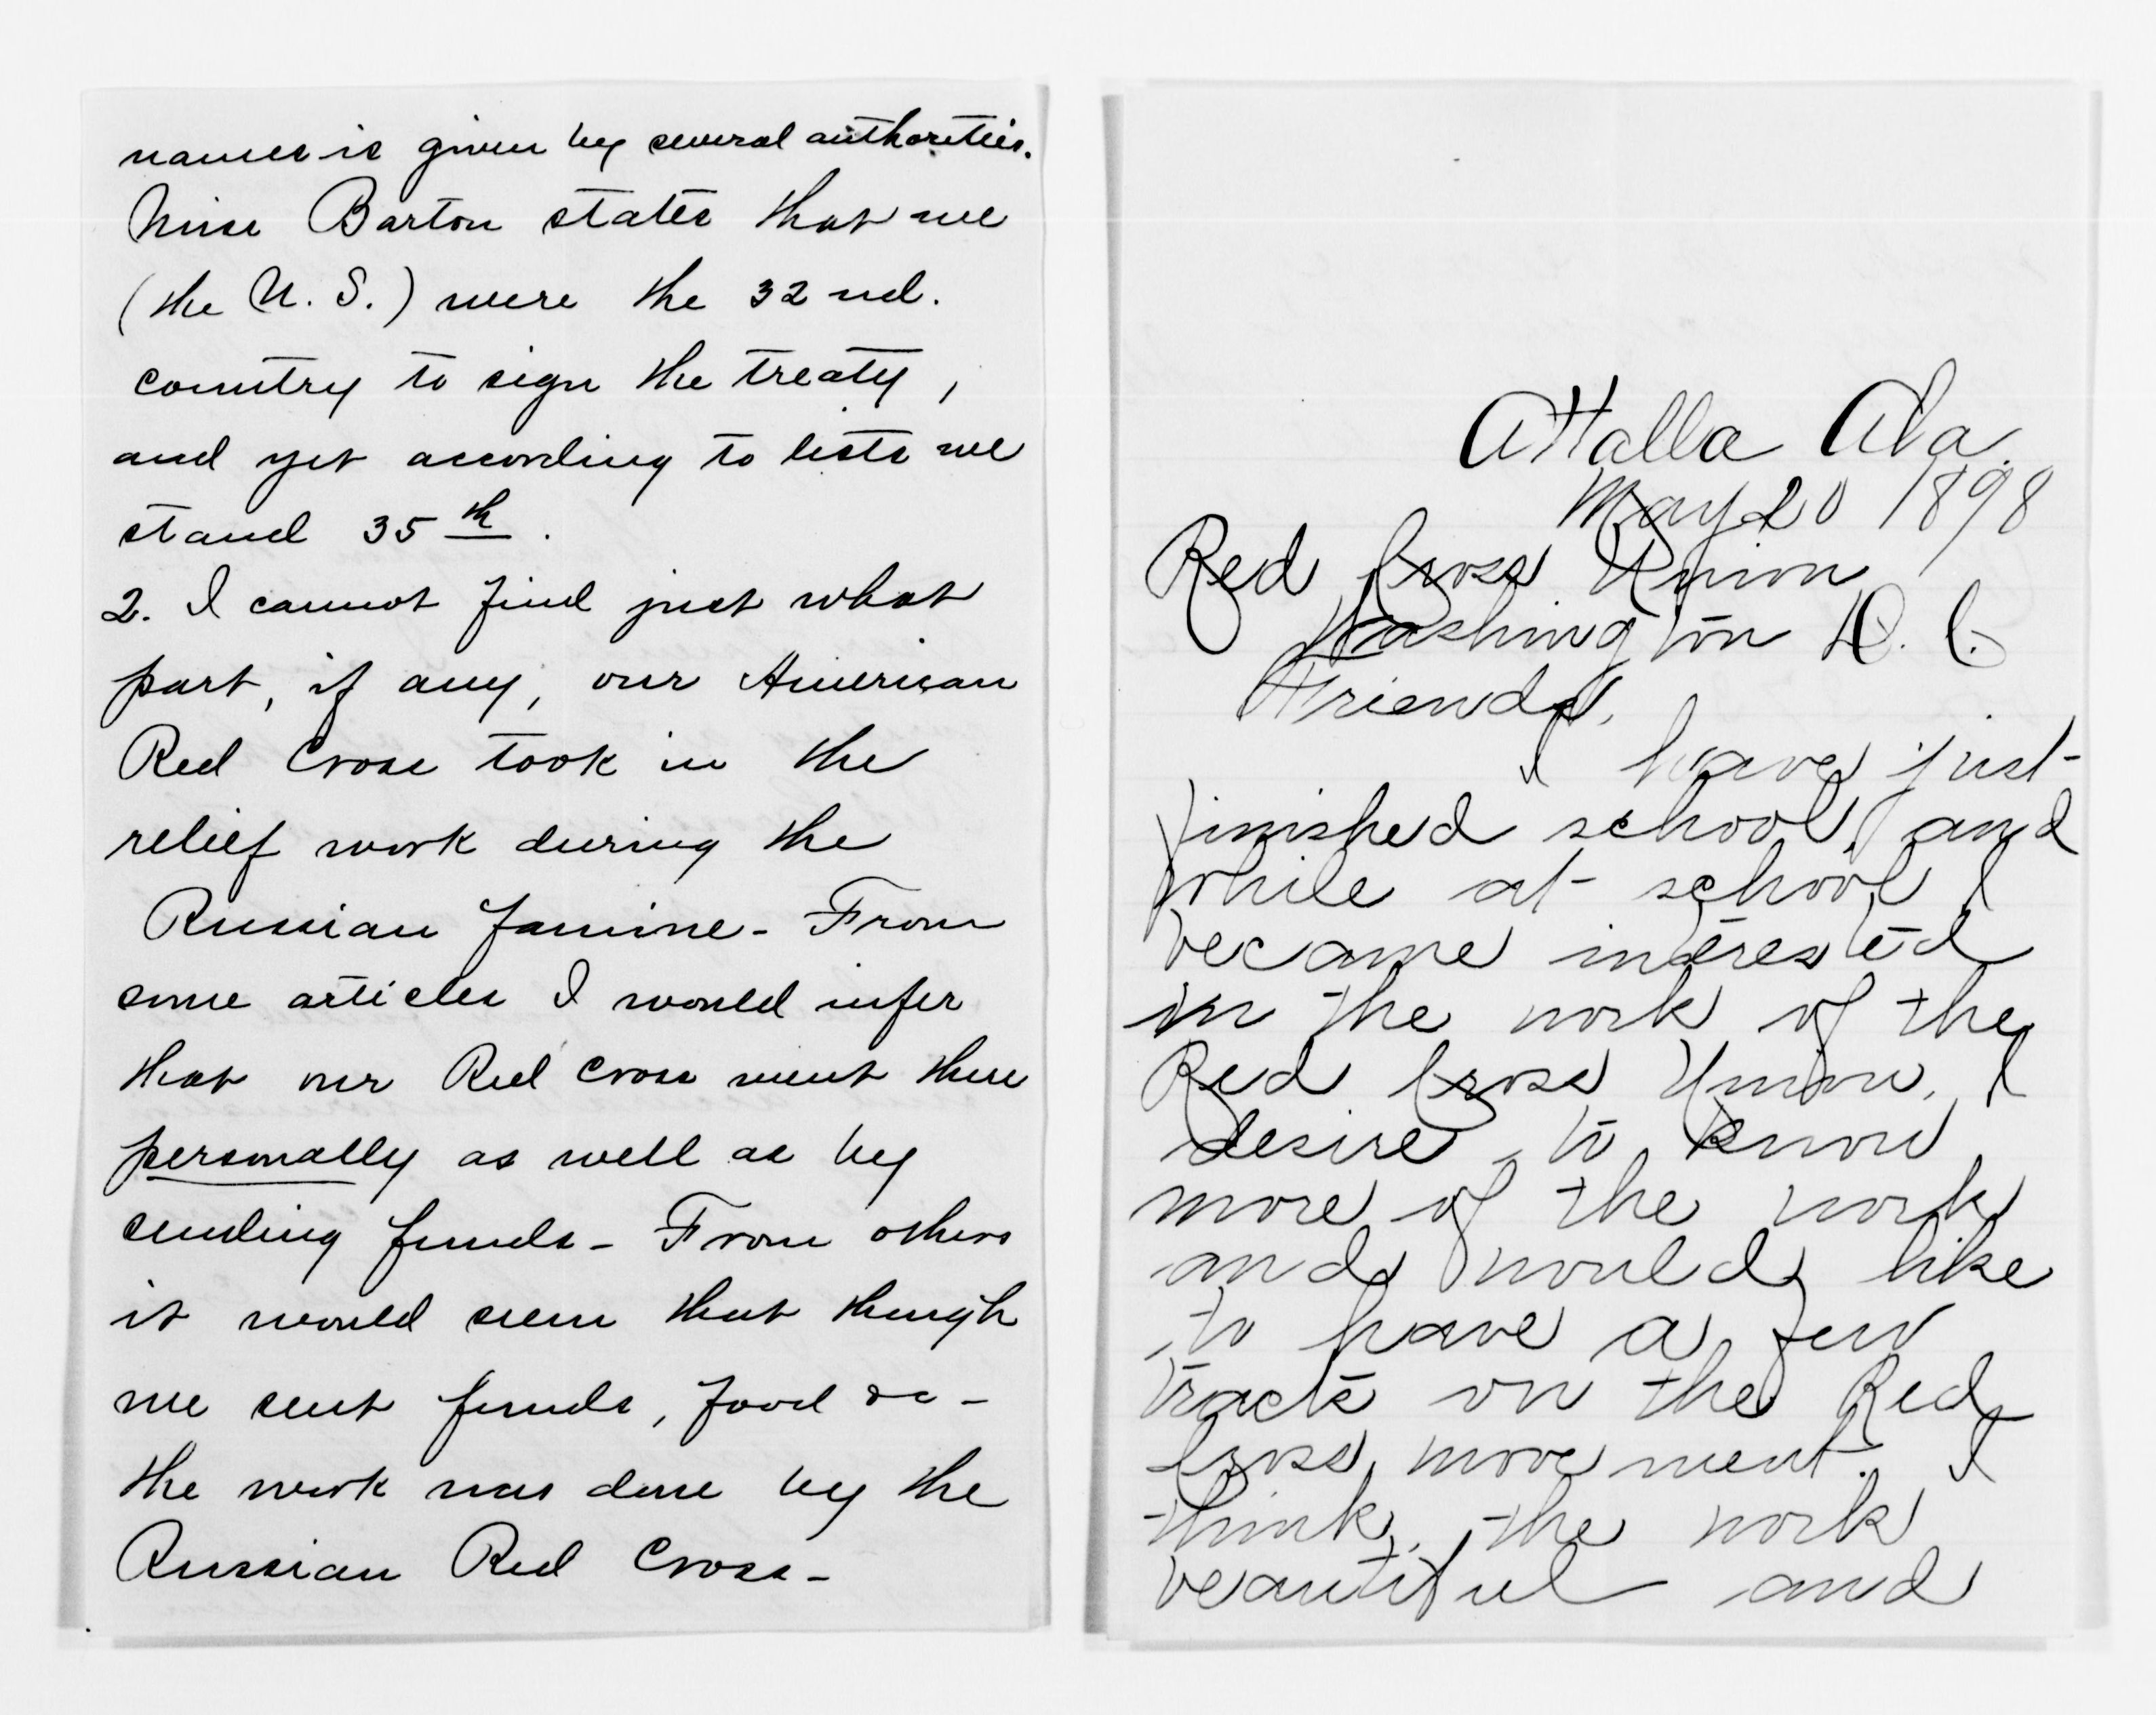 names is given by several authorities.
Miss Barton states that we
(the U. S.) were the 32 nd.
country to sign the treaty,
and yet according to lists we
stand 35th.
2. I cannot find just what
part, if any, our American
Red Cross took in the
relief work during the
Russian famine - From
some articles I would infer
that our Red Cross went there
personally as well as by
sending funds - From others
it would seem that though
we sent funds, food &c -
the work was done by the
Russian Red Cross -
Attalla Ala.
May 20 1898
Red Cross Union
Washington D. C.
Friends,
I have just
finished school, and
while at school I
became interested
in the work of the
Red Cross Union, I
desire to know
more of the work
and would like
to have a few
tracts on the Red
Cross movement. I
think the work
beautiful and